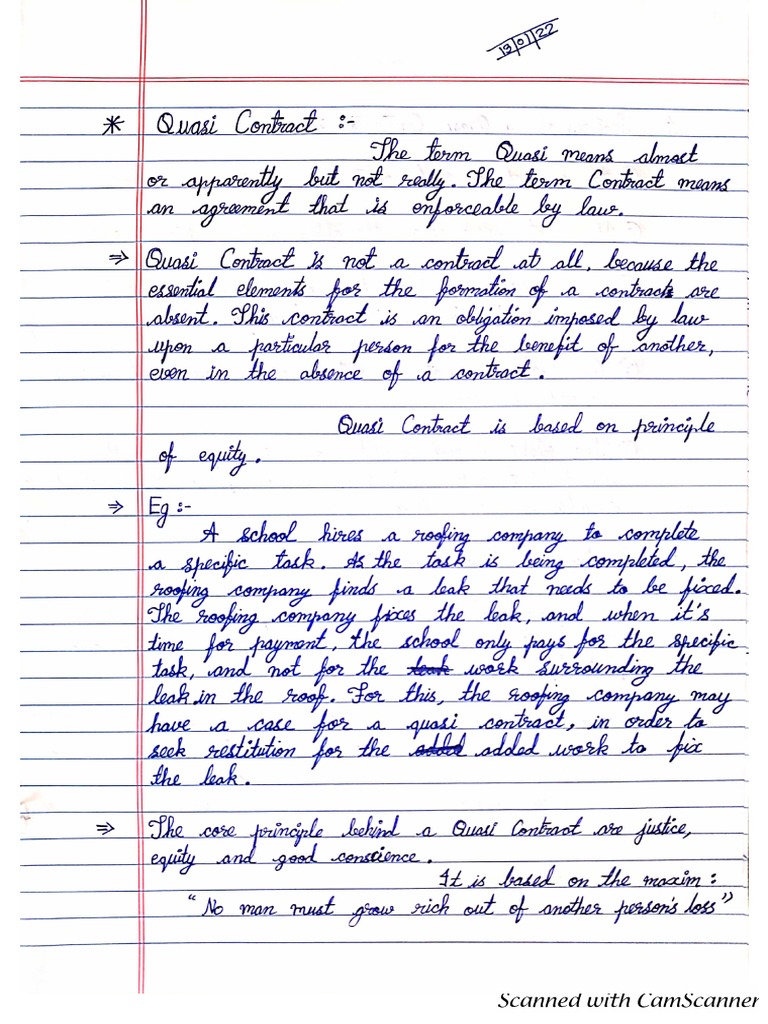 19/01/22
* Quasi Contract :-
The term Quasi means almost
or apparently but not really. The term Contract means
an agreement that is enforceable by law.
⇒ Quasi Contract is not a contract at all, because the
essential elements for the formation of a contract are
absent. This contract is an obligation imposed by law
upon a particular person for the benefit of another,
even in the absence of a contract.
Quasi Contract is based on principle
of equity.
⇒ Eg :-
A school hires a roofing company to complete
a specific task. As the task is being completed, the
roofing company finds a leak that needs to be fixed.
The roofing company fixes the leak, and when it's
time for payment, the school only pays for the specific
task, and not for the work surrounding the
leak in the roof. For this, the roofing company may
have a case for a quasi contract, in order to
seek restitution for the added work to fix
the leak.
⇒ The core principle behind a Quasi Contract are justice,
equity and good conscience.
It is based on the maxim :
"No man must grow rich out of another person's loss"
Scanned with CamScanner